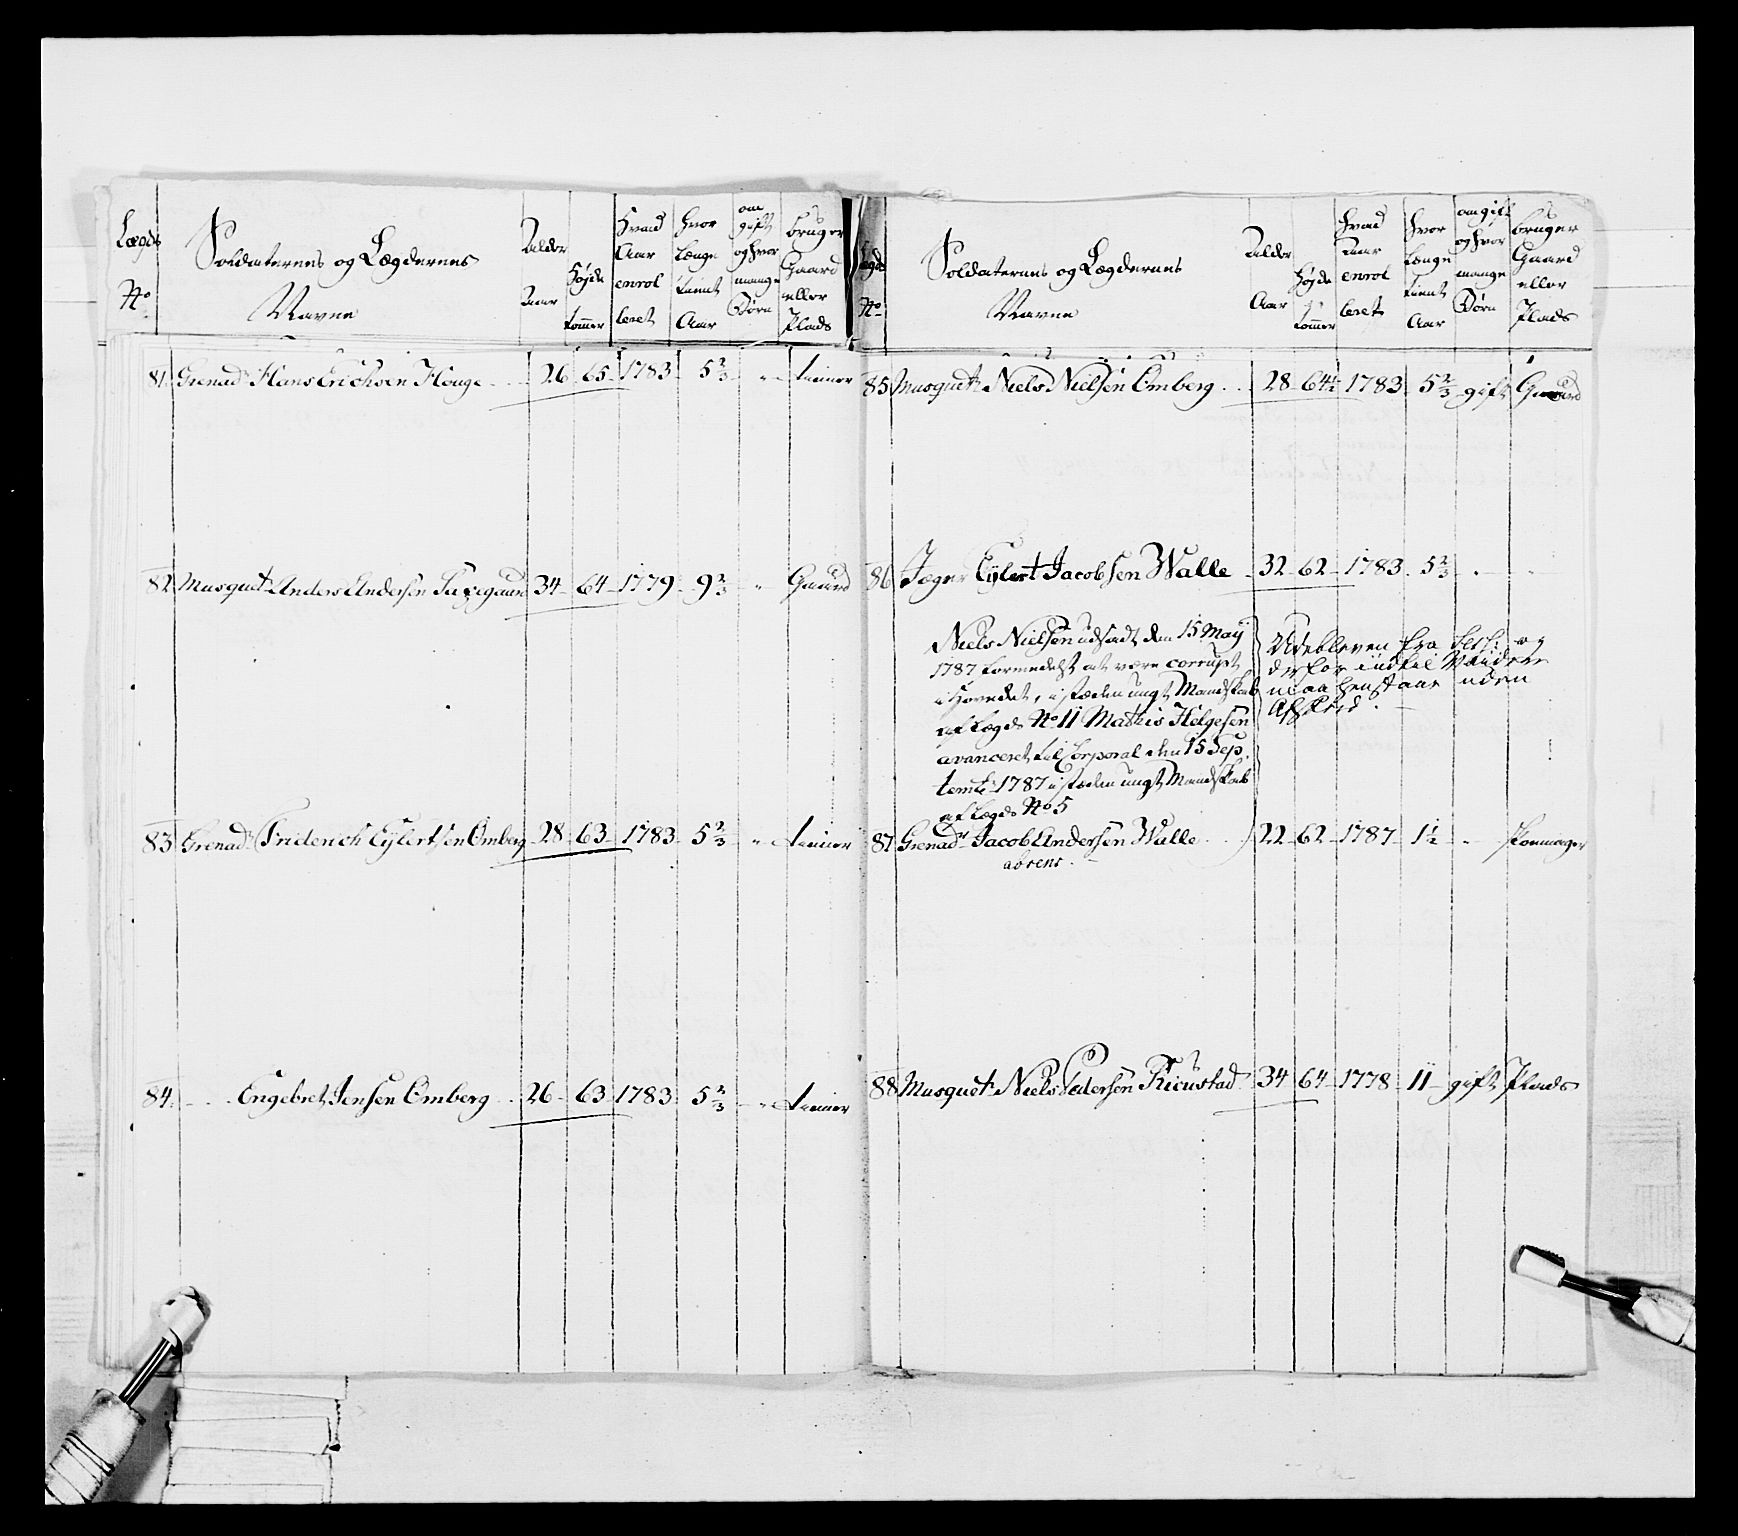 Lægds No
Soldaternes og Lægdernes Navne
Alder Aar
Højde tommer
Hvad Aar enrolleret
hvor længe tient Aar
om gift og hvor mange Børn
bruger Gaard eller Plads
81 Grenad. Hans Erichsen Houge 26 65 1783 5 2/3 " tiener
82 Musquet. Anders Andersen 34 64 1779 9 2/3 " Gaard
83 Grenad. Friderich Eylertsen Omberg 28 63 1783 5 2/3 " tiener
84 Engebret Jensen Omberg 26 63 1783 5 2/3 " tiener
Lægds No
Soldaternes og Lægdernes Navne
Alder Aar
Højde tommer
hvad Aar enrolleret
hvor længe tient Aar
om gift og hvor mange Børn
bruger Gaard eller Plads
85 Musquet. Niels Nielsen Omberg 28 64 1/2 1783 5 2/3 gift Gaard
86 Jæger Eylert Jacobsen Walle 32 62 1783 5 2/3
Niels Nielsen udsadt den 15 Maÿ
1787 formedelst at være corrupt
i Hovedet, istæden ungt Mandskab
af Lægds No 11 Mathis Helgesen
avanceret til Corporal den 15 Sep
tembr 1787 istæden ungt Mandskab
af Lægds No 5
Udebleven fra Sess: og
derfor indtil Videre
maa henstaae uden
Afskeed.
87 Grenad. Jacob Andersen Walle 22 62 1787 1 1/2 Skoemager
absent.
88 Musquet. Niels Pedersen 34 64 1778 11 gift Plads